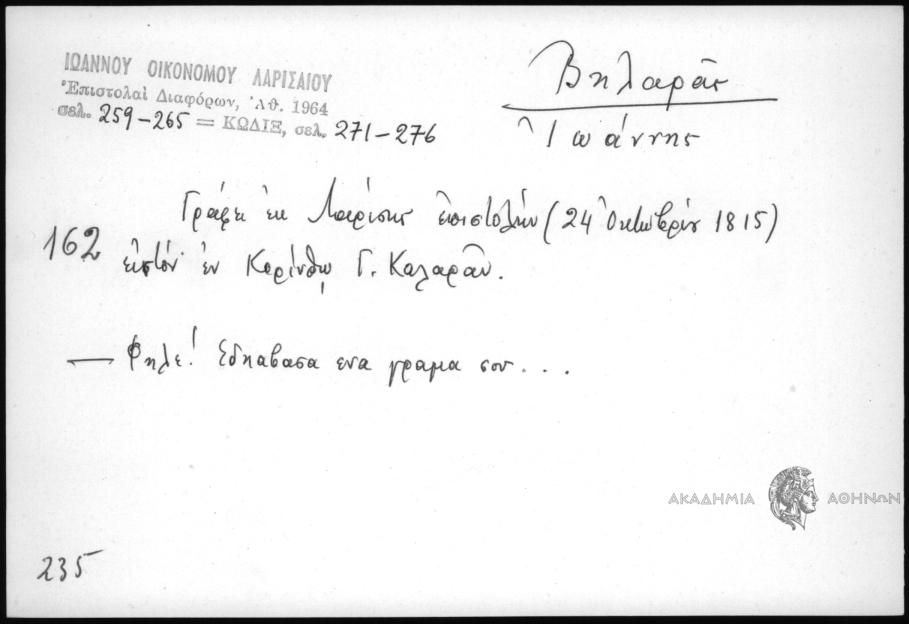 ΙΩΑΝΝΟΥ ΟΙΚΟΝΟΜΟΥ ΛΑΡΙΣΑΙΟΥ
Ἐπιστολαὶ Διαφόρων, Ἀθ. 1964
σελ. 259-265 = ΚΩΔΙΞ, σελ. 271-276
Βηλαρᾶς
Ἰωάννης
162
Γράφει ἐκ Λαρίσης ἐπιστολήν (24 Ὀκτωβρίου 1815)
εἰς τόν ἐν Κορίνθῳ Γ. Καλαρᾶν.
— Φηλε! Εδηαβασα ενα γραμα σου...
ΑΚΑΔΗΜΙΑ ΑΘΗΝΩΝ
235